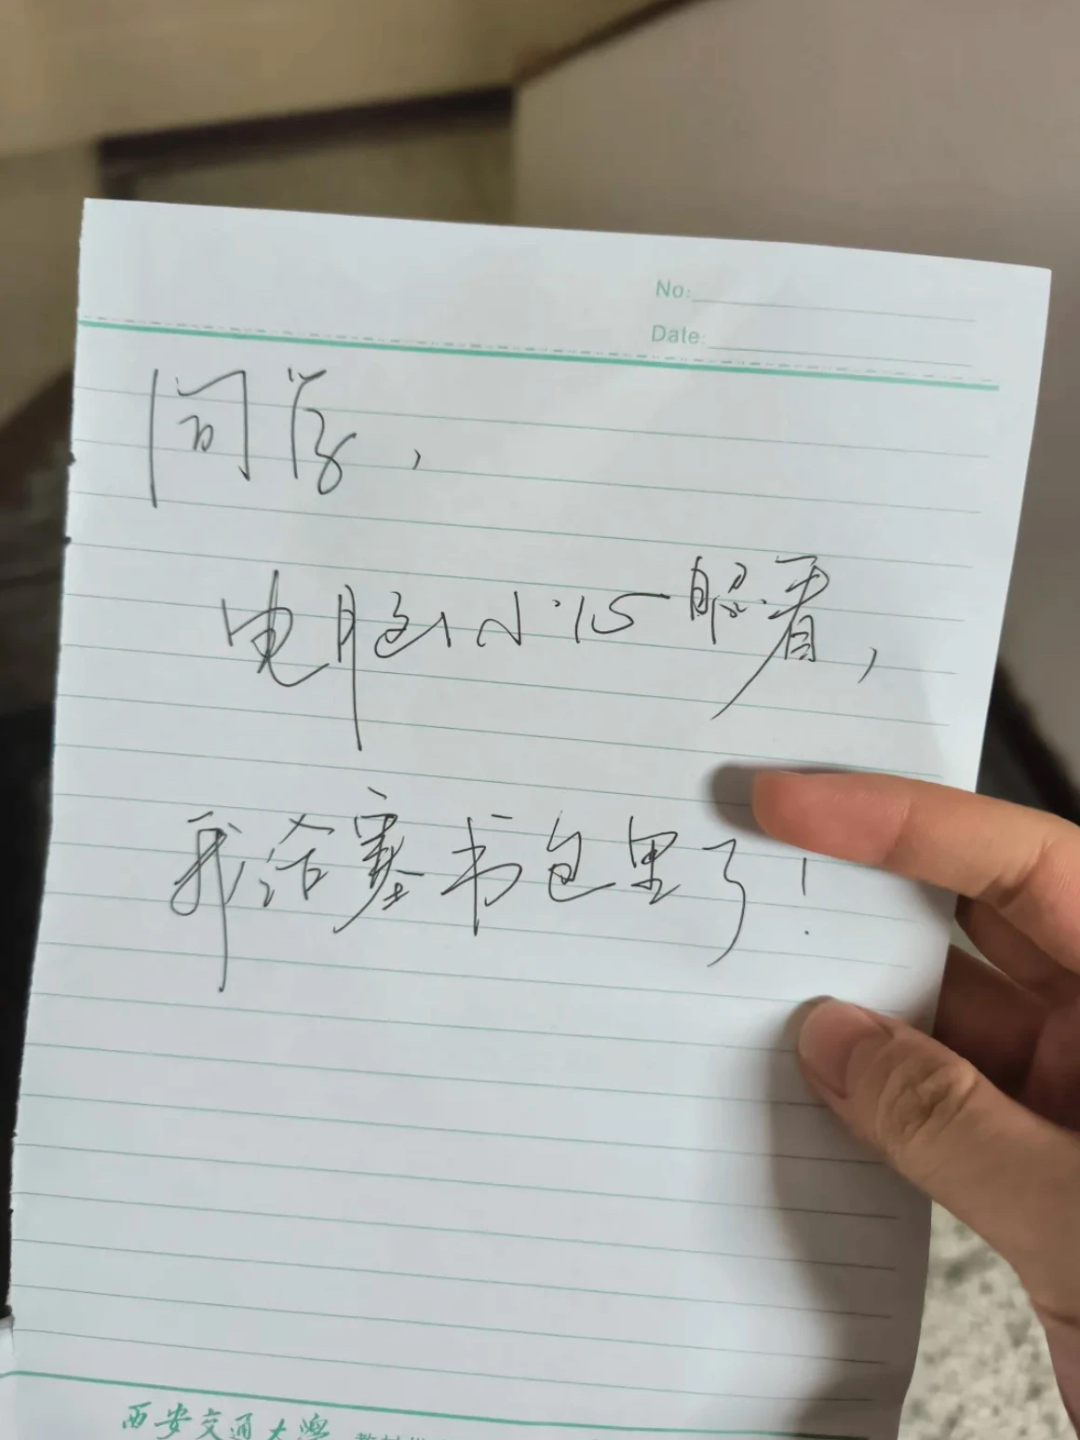 No:
Date:
同学,
电脑小心照看,
我给塞书包里了!
西安交通大学